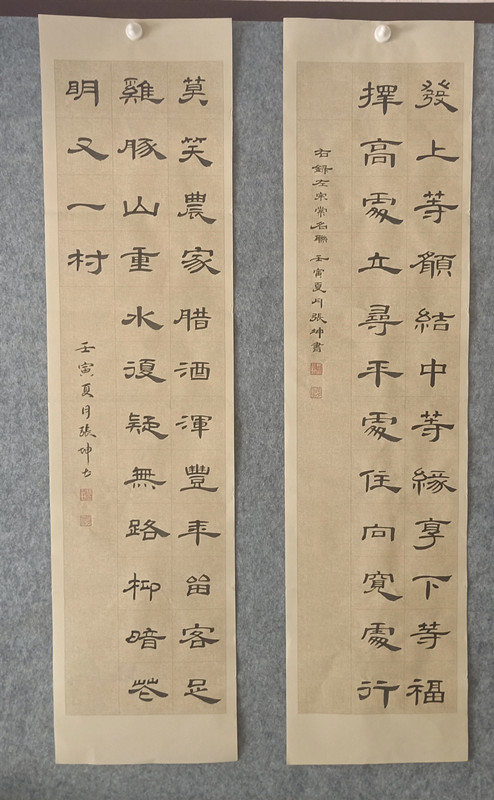 發上等願結中等緣享下等福
擇高處立尋平處住向寬處行
右錄左宗棠名聯 壬寅夏月張坤書
莫笑農家腊酒渾豐年留客足
雞豚山重水復疑無路柳暗花
明又一村
壬寅夏月張坤书